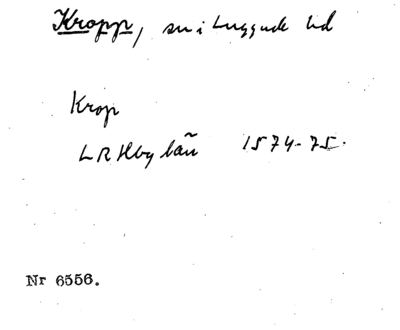 Kropp, sn i Luggude hd
Krop
LRHbg län 1574-75.
Nr 6556.